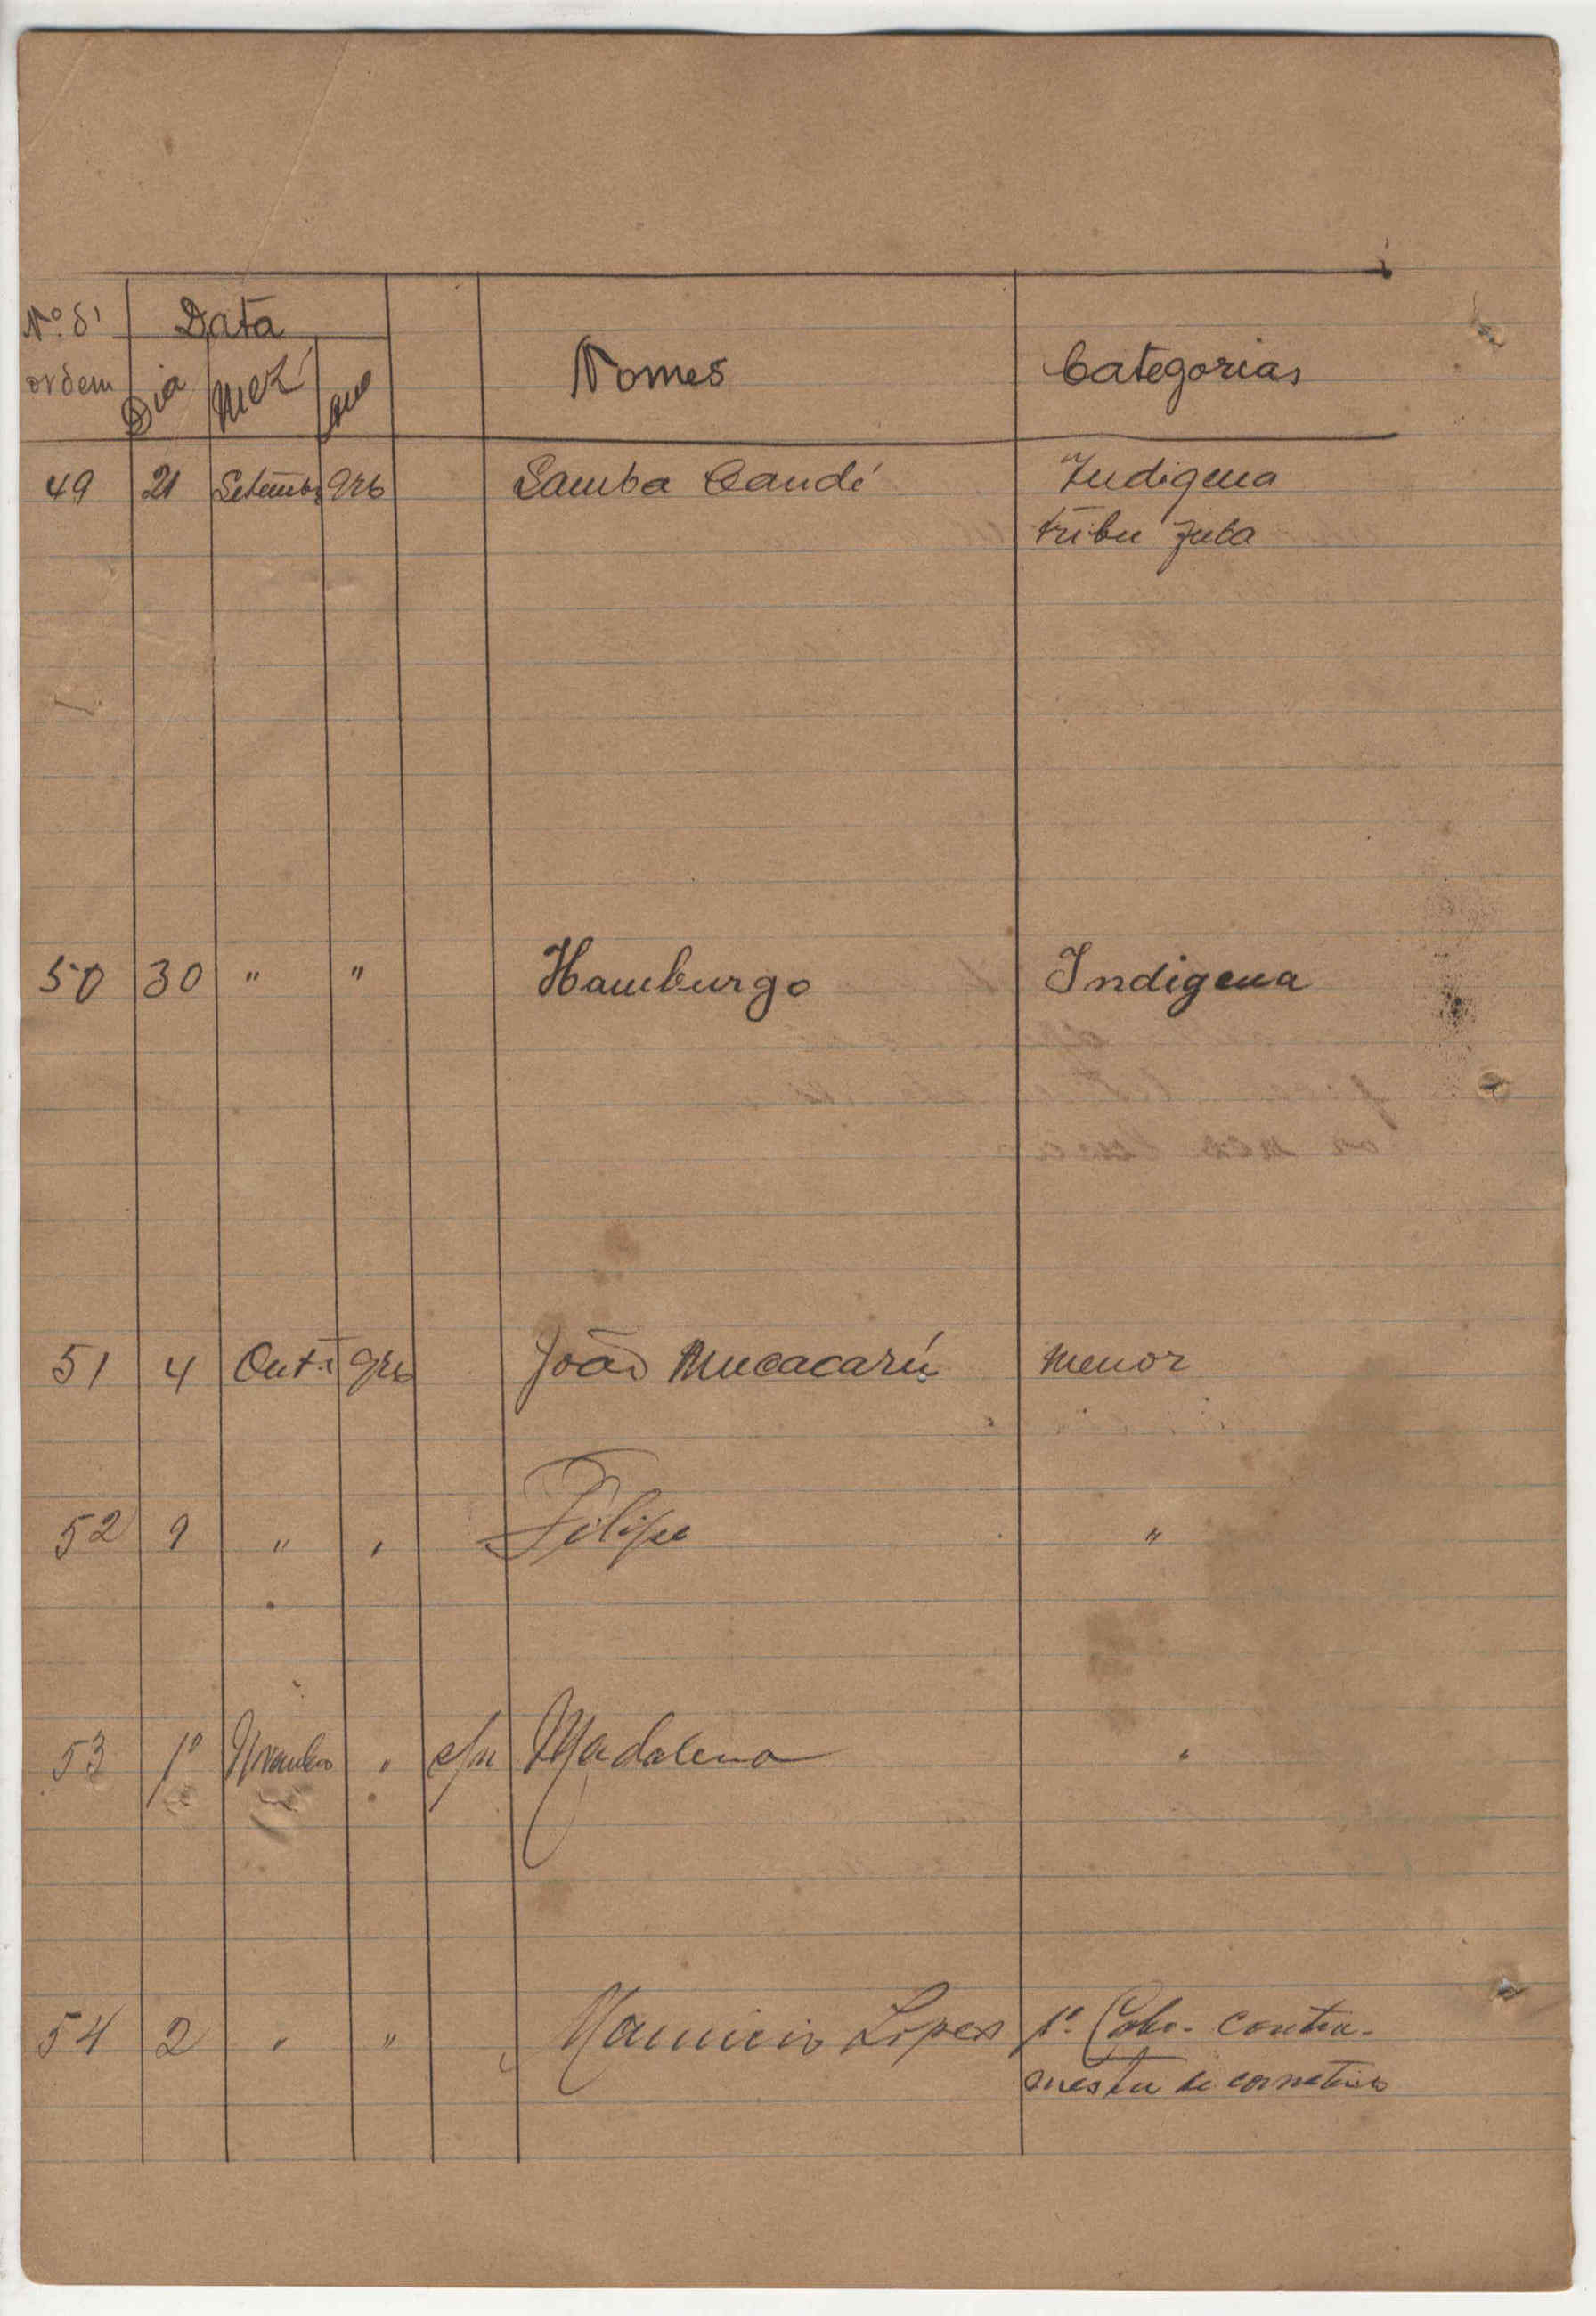 Nº. d'
ordem
Data
Dia Mez Ano
Nomes
Categorias
49 21 Setembº 926 Samba Candé Indigena
tribu fula
50 30 " " Hamburgo Indigena
51 4 Outº 926 João Mucacarú menor
52 9 " " Filipe "
53 1º Novembro " Madalena "
54 2 " " Mauricio Lopes 1º. Cabo- contra-
mestre de corneteiros